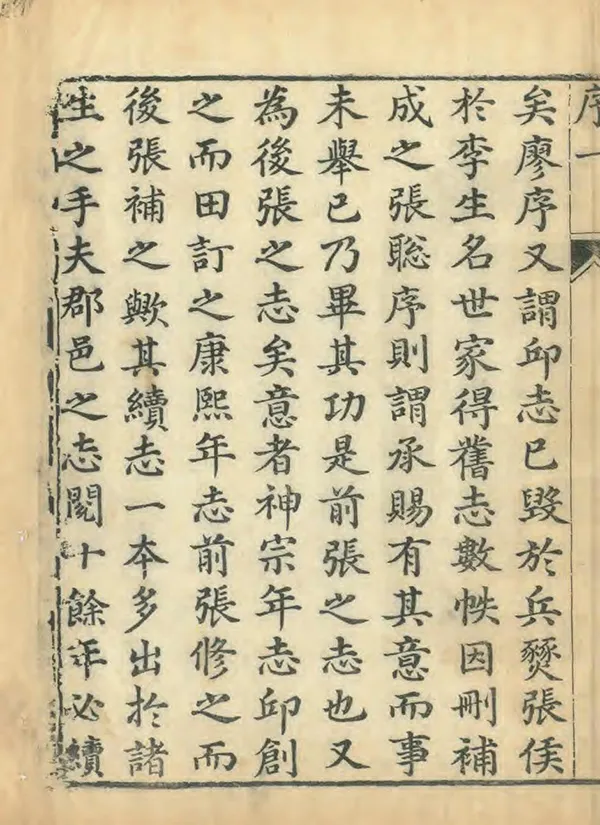 序一
矣廖序又謂邱志已毀於兵燹張侯
於李生名世家得舊志數帙因刪補
成之張聡序則謂承賜有其意而事
未舉已乃畢其功是前張之志也又
為後張之志矣意者神宗年志邱創
之而田訂之康熙年志前張修之而
後張補之歟其續志一本多出於諸
生之手夫郡邑之志閱十餘年必續